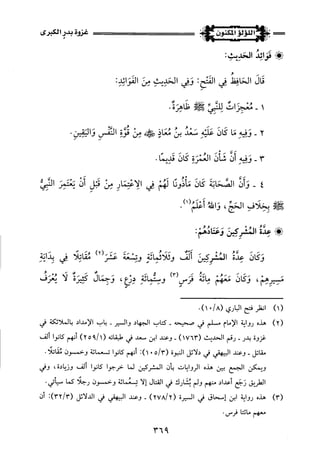 اللؤلؤ المكنون
غزوة بدر الكبرى
فَوَائِدُ الحَدِيثِ:
قَالَ الحَافِظُ فِي الفَتْحِ: وَفِي الحَدِيثِ مِنَ الفَوَائِدِ:
١ - مُعْجِزَاتٌ لِلنَّبِيِّ ﷺ ظَاهِرَةٌ.
٢ - وَفِيهِ مَا كَانَ عَلَيْهِ سَعْدُ بنُ مُعَاذٍ ﵁ مِنْ قُوَّةِ النَّفْسِ وَاليَقِينِ.
٣ - وَفِيهِ أَنَّ شَأْنَ العُمْرَةِ كَانَ قَدِيمًا.
٤ - وَأَنَّ الصَّحَابَةَ كَانَ مَأْذُونًا لَهُمْ فِي الاِعْتِمَارِ مِنْ قَبْلِ أَنْ يَعْتَمِرَ النَّبِيُّ
ﷺ بِخِلَافِ الحَجِّ، وَاللهُ أَعْلَمُ(١).
عِدَّةُ المُشْرِكِينَ وَعَتَادُهُمْ:
وَكَانَ عِدَّةُ المُشْرِكِينَ أَلْفٌ وَثَلَاثُمِائَةٍ وَتِسْعَةَ عَشَرَ(٢) مُقَاتِلًا فِي بِدَايَةِ
مَسِيرِهِمْ، وَكَانَ مَعَهُمْ مِائَةُ فَرَسٍ(٣) وسِتُّمِائَةِ دِرْعٍ، وَجِمَالٌ كَثِيرَةٌ لَا يُعْرَفُ
(١) انظر فتح الباري (١٠/٨).
(٢) هذه رواية الإمام مسلم في صحيحه - كتاب الجهاد والسير - باب الإمداد بالملائكة في
غزوة بدر - رقم الحديث (١٧٦٣) - وعند ابن سعد في طبقاته (٢٥٩/١) أنهم كانوا ألف
مقاتل - وعند البيهقي في دلائل النبوة (١٠٥/٣): أنهم كانوا تسعمائة وخمسون مُقَاتلًا.
ويمكن الجمع بين هذه الروايات بأن المشركين لما خرجوا كانوا ألف وزيادة، وفي
الطريق رَجَع أعداد منهم ولم يُشَارك في القتال إلا تِسعُمائة وخمسون رجلًا كما سيأتي.
(٣) هذه رواية ابن إسحاق في السيرة (٢٧٨/٢) - وعند البيهقي في الدلائل (٣٢/٣): أن
معهم مائتا فرس.
٣٦٩